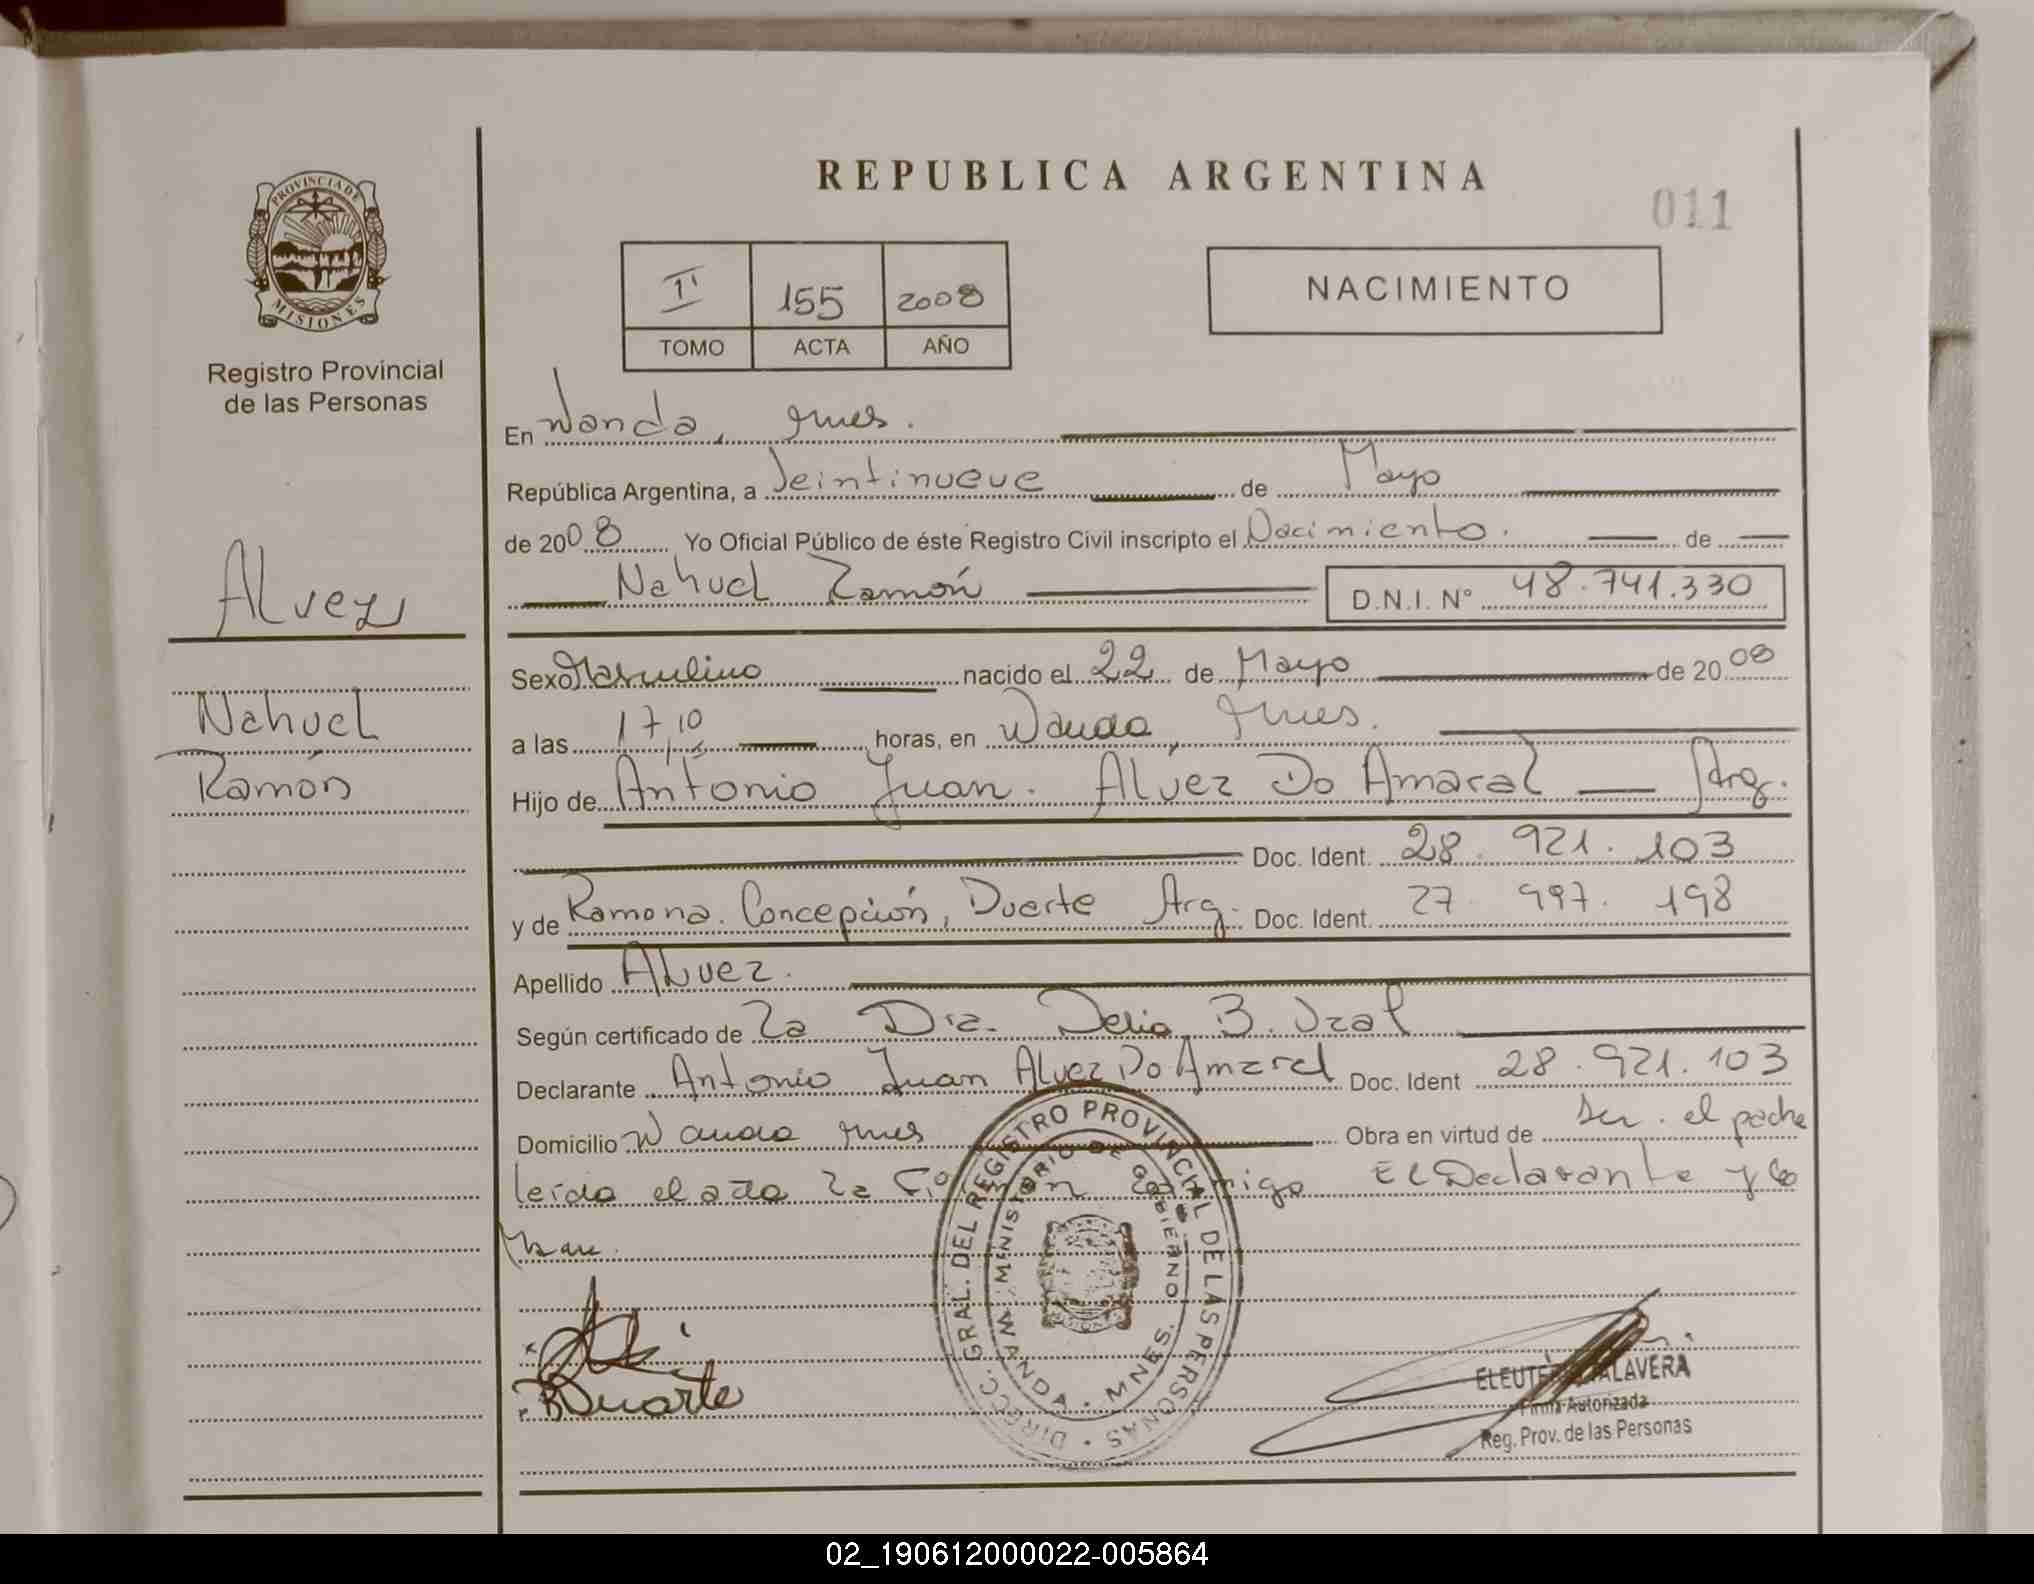 REPUBLICA ARGENTINA
011
PROVINCIA DE
MISIONES
Registro Provincial
de las Personas
II 155 2008
TOMO ACTA AÑO
NACIMIENTO
En Wanda, Mnes.
República Argentina, a Veintinueve de Mayo
de 2008 Yo Oficial Público de éste Registro Civil inscripto el Nacimiento. de
Nahuel Ramón D.N.I. N° 48.741.330
Alvez
Nahuel
Ramón
Sexo Masculino nacido el 22 de Mayo de 2008
a las 17,10 horas, en Wanda, Mnes.
Hijo de Antonio Juan. Alvez Do Amaral Arg.
Doc. Ident. 28.921.103
y de Ramona. Concepción, Duarte Arg. Doc. Ident. 27.997.198
Apellido Alvez.
Según certificado de La Dra. Delia B.
Declarante Antonio Juan Alvez Do Amaral Doc. Ident 28.921.103
Domicilio Wanda Mnes Obra en virtud de Ser. el padre
leída el acta la conmigo El Declarante y la
DIRECC. GRAL. DEL REGISTRO PROVINCIAL DE LAS PERSONAS
MINISTERIO DE GOBIERNO
WANDA - MNES.
Duarte
TALAVERA
Firma Autorizada
Reg. Prov. de las Personas
02_190612000022-005864